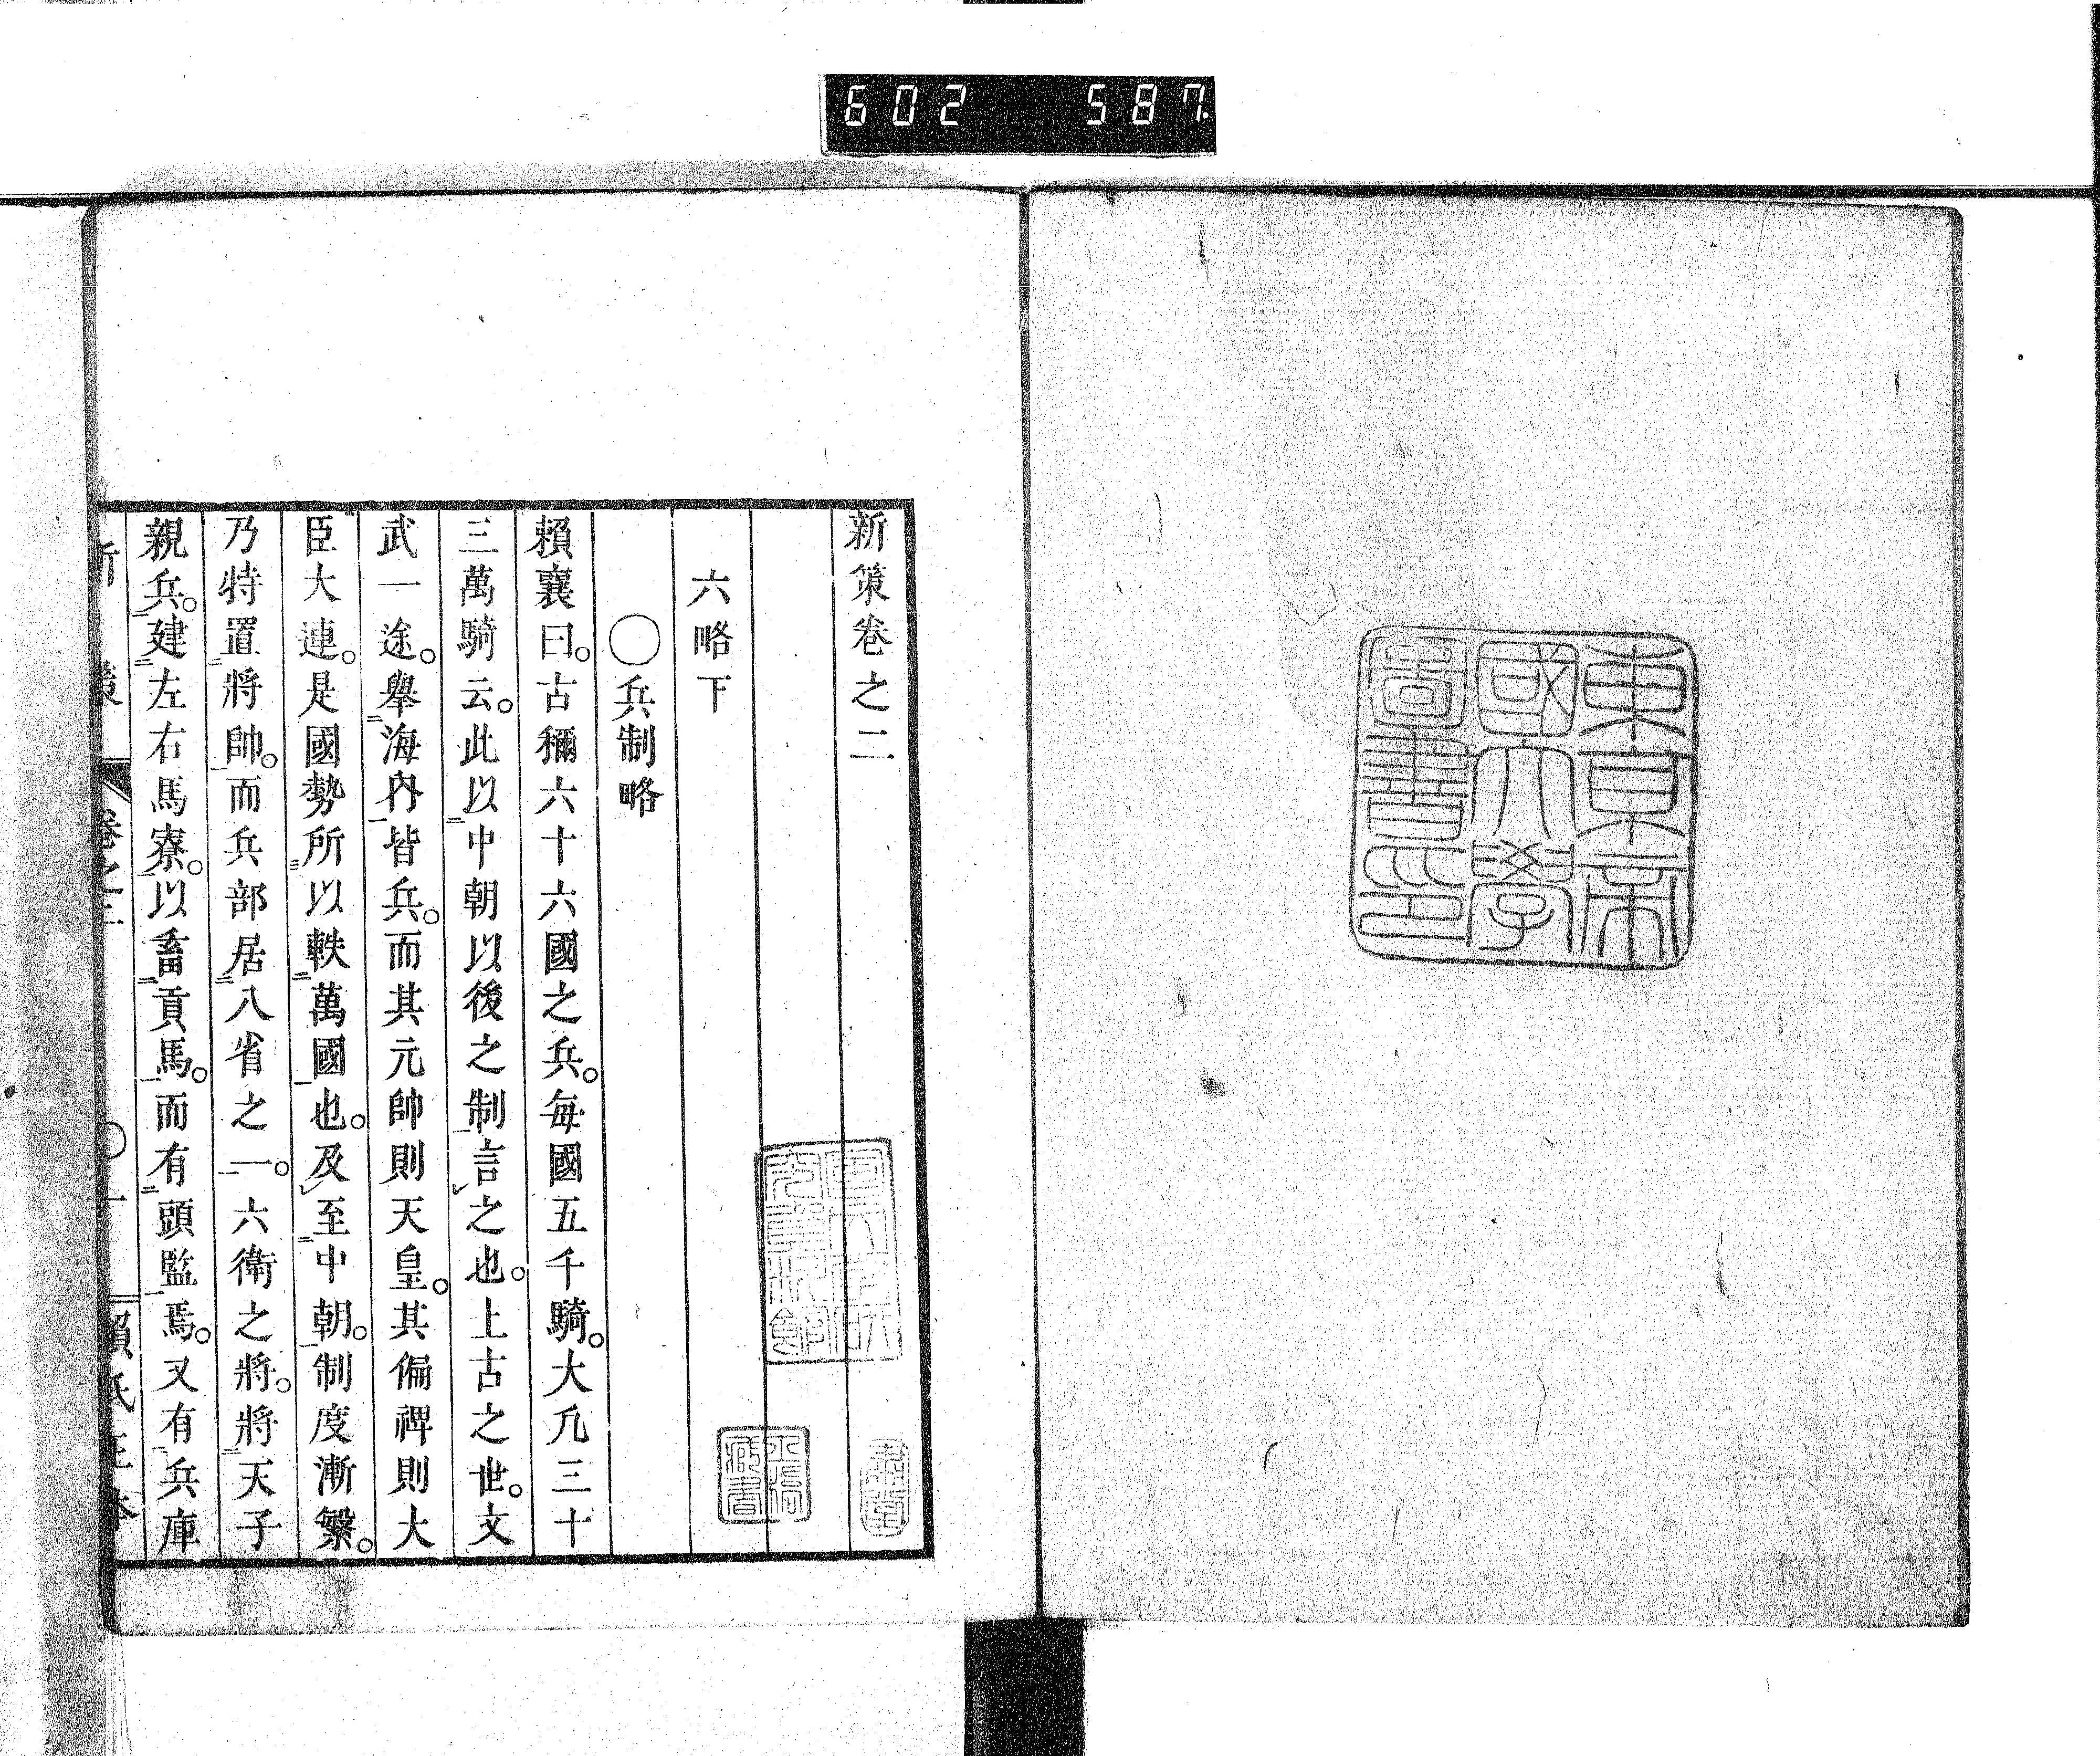 602 587.
東京帝
國大學
圖書印
新策卷之二
六略下
〇兵制略
賴襄曰。古稱六十六國之兵。每國五千騎。大凡三十
三萬騎云。此以中朝以後之制言之也。上古之世。文
武一途。舉海內皆兵。而其元帥則天皇。其偏裨則大
臣大連。是國勢所以軼萬國也。及至中朝。制度漸繁。
乃特置將帥。而兵部居八省之一。六衛之將。將天子
親兵。建左右馬寮。以畜貢馬。而有頭監焉。又有兵庫
新策 卷之二 〇一 賴氏正本